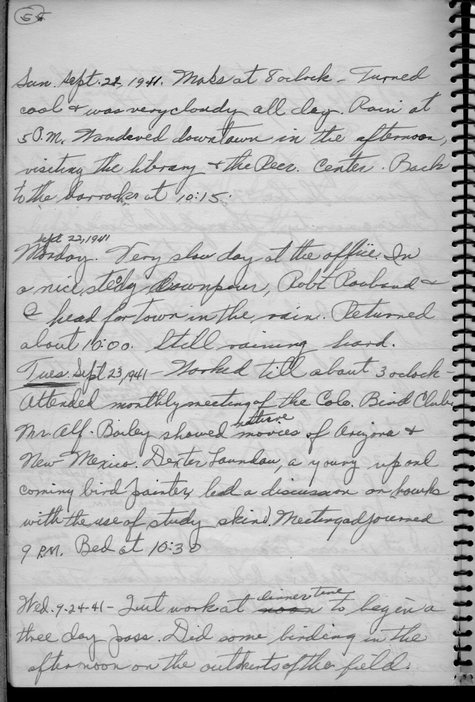 56
Sun. Sept. 21, 1941. Mass at 8 oclock - Turned
cool & was very cloudy all day. Rain at
5 P.M. Wandered downtown in the afternoon,
visiting the library & the Recr. Center. Back
to the barracks at 10:15.
Sept 22, 1941
Monday. Very slow day at the office. In
a nice, steady downpour, Robt. &
I head for town in the rain. Returned
about 10:00. Still raining hard.
Tues. Sept 23, 1941 - Worked till about 3 oclock -
Attended monthly meeting of the Colo. Bird Club.
nature
Mr Alf. Bailey showed movies of Arizona &
New Mexico. Dexter Landau, a young up and
coming bird painter, led a discussion on hawks
with the use of study skins. Meeting adjourned
9 P.M. Bed at 10:30
dinner time
Wed. 9-24-41 - Quit work at noon to begin a
three day pass. Did some birding in the
afternoon on the outskirts of the field.